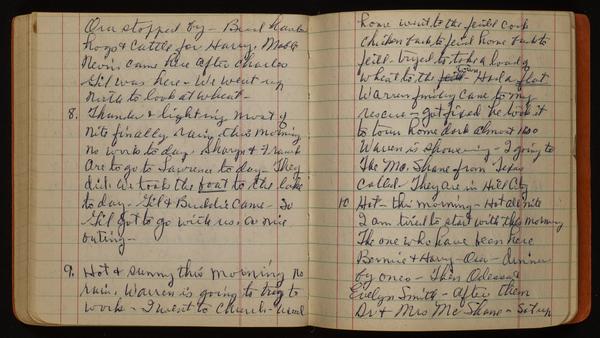 Ora stopped by - Brad hauls
hogs & cattle for Harry, Mable
Nevin, came here after Charles
Gil was here - We went up
north to look at wheat -
8. Thunder & lighting most of
nite finally rain, this morning
no work to day. Sharps & Frank
are to go to Lawrence to day - They
did. We took the boat to the lake
to day - Gil & Buddie came - So
Gil got to go with us. a nice
outing -
9. Hot & sunny this morning no
rain. Warren is going to try to
work - I went to Church - usual
home went to the feild cook
chicken back to feild home back to
feild - tryed to take a load of
wheat to the town - Had a flat
Warren finily came to my
rescue - got fixed he took it
to town home dark almost 1200
Warren is - I going to
The Mc Shane from Texas
called - They are in Hill City
10 Hot - this morning - Hot all nite
I am tired to start with this morning
The one who have been here
Bernice & Harry - Ora - Arminer
by ones - Then Odessa &
Evelyn Smith - After them
Dr & Mrs Mc Shane - sit up